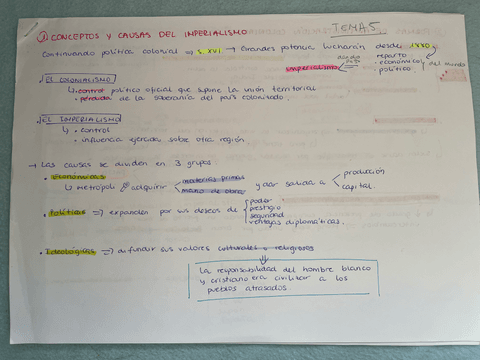 ① CONCEPTOS Y CAUSAS DEL IMPERIALISMO TEMA 5.
Continuando política colonial => S.XVI. → Grandes potencia lucharán desde 1880.
reparto
económico y del mundo
político.
imperialismo
EL COLONIALISMO
↳ control político oficial que supone la unión territorial
pérdida de la soberanía del país colonizado.
EL IMPERIALISMO
↳ control
influencia ejercida sobre otra región.
→ Las causas se dividen en 3 grupos.
• Económicas
↳ metrópoli adquirir materias primas mano de obra y dar salida a producción capital.
• Políticas => expanden por sus deseos de
poder
prestigio
seguridad
ventajas diplomáticas.
• Ideológicas => difundir sus valores culturales o religiosos
La responsabilidad del hombre blanco
y cristiano era civilizar a los
pueblos atrasados.